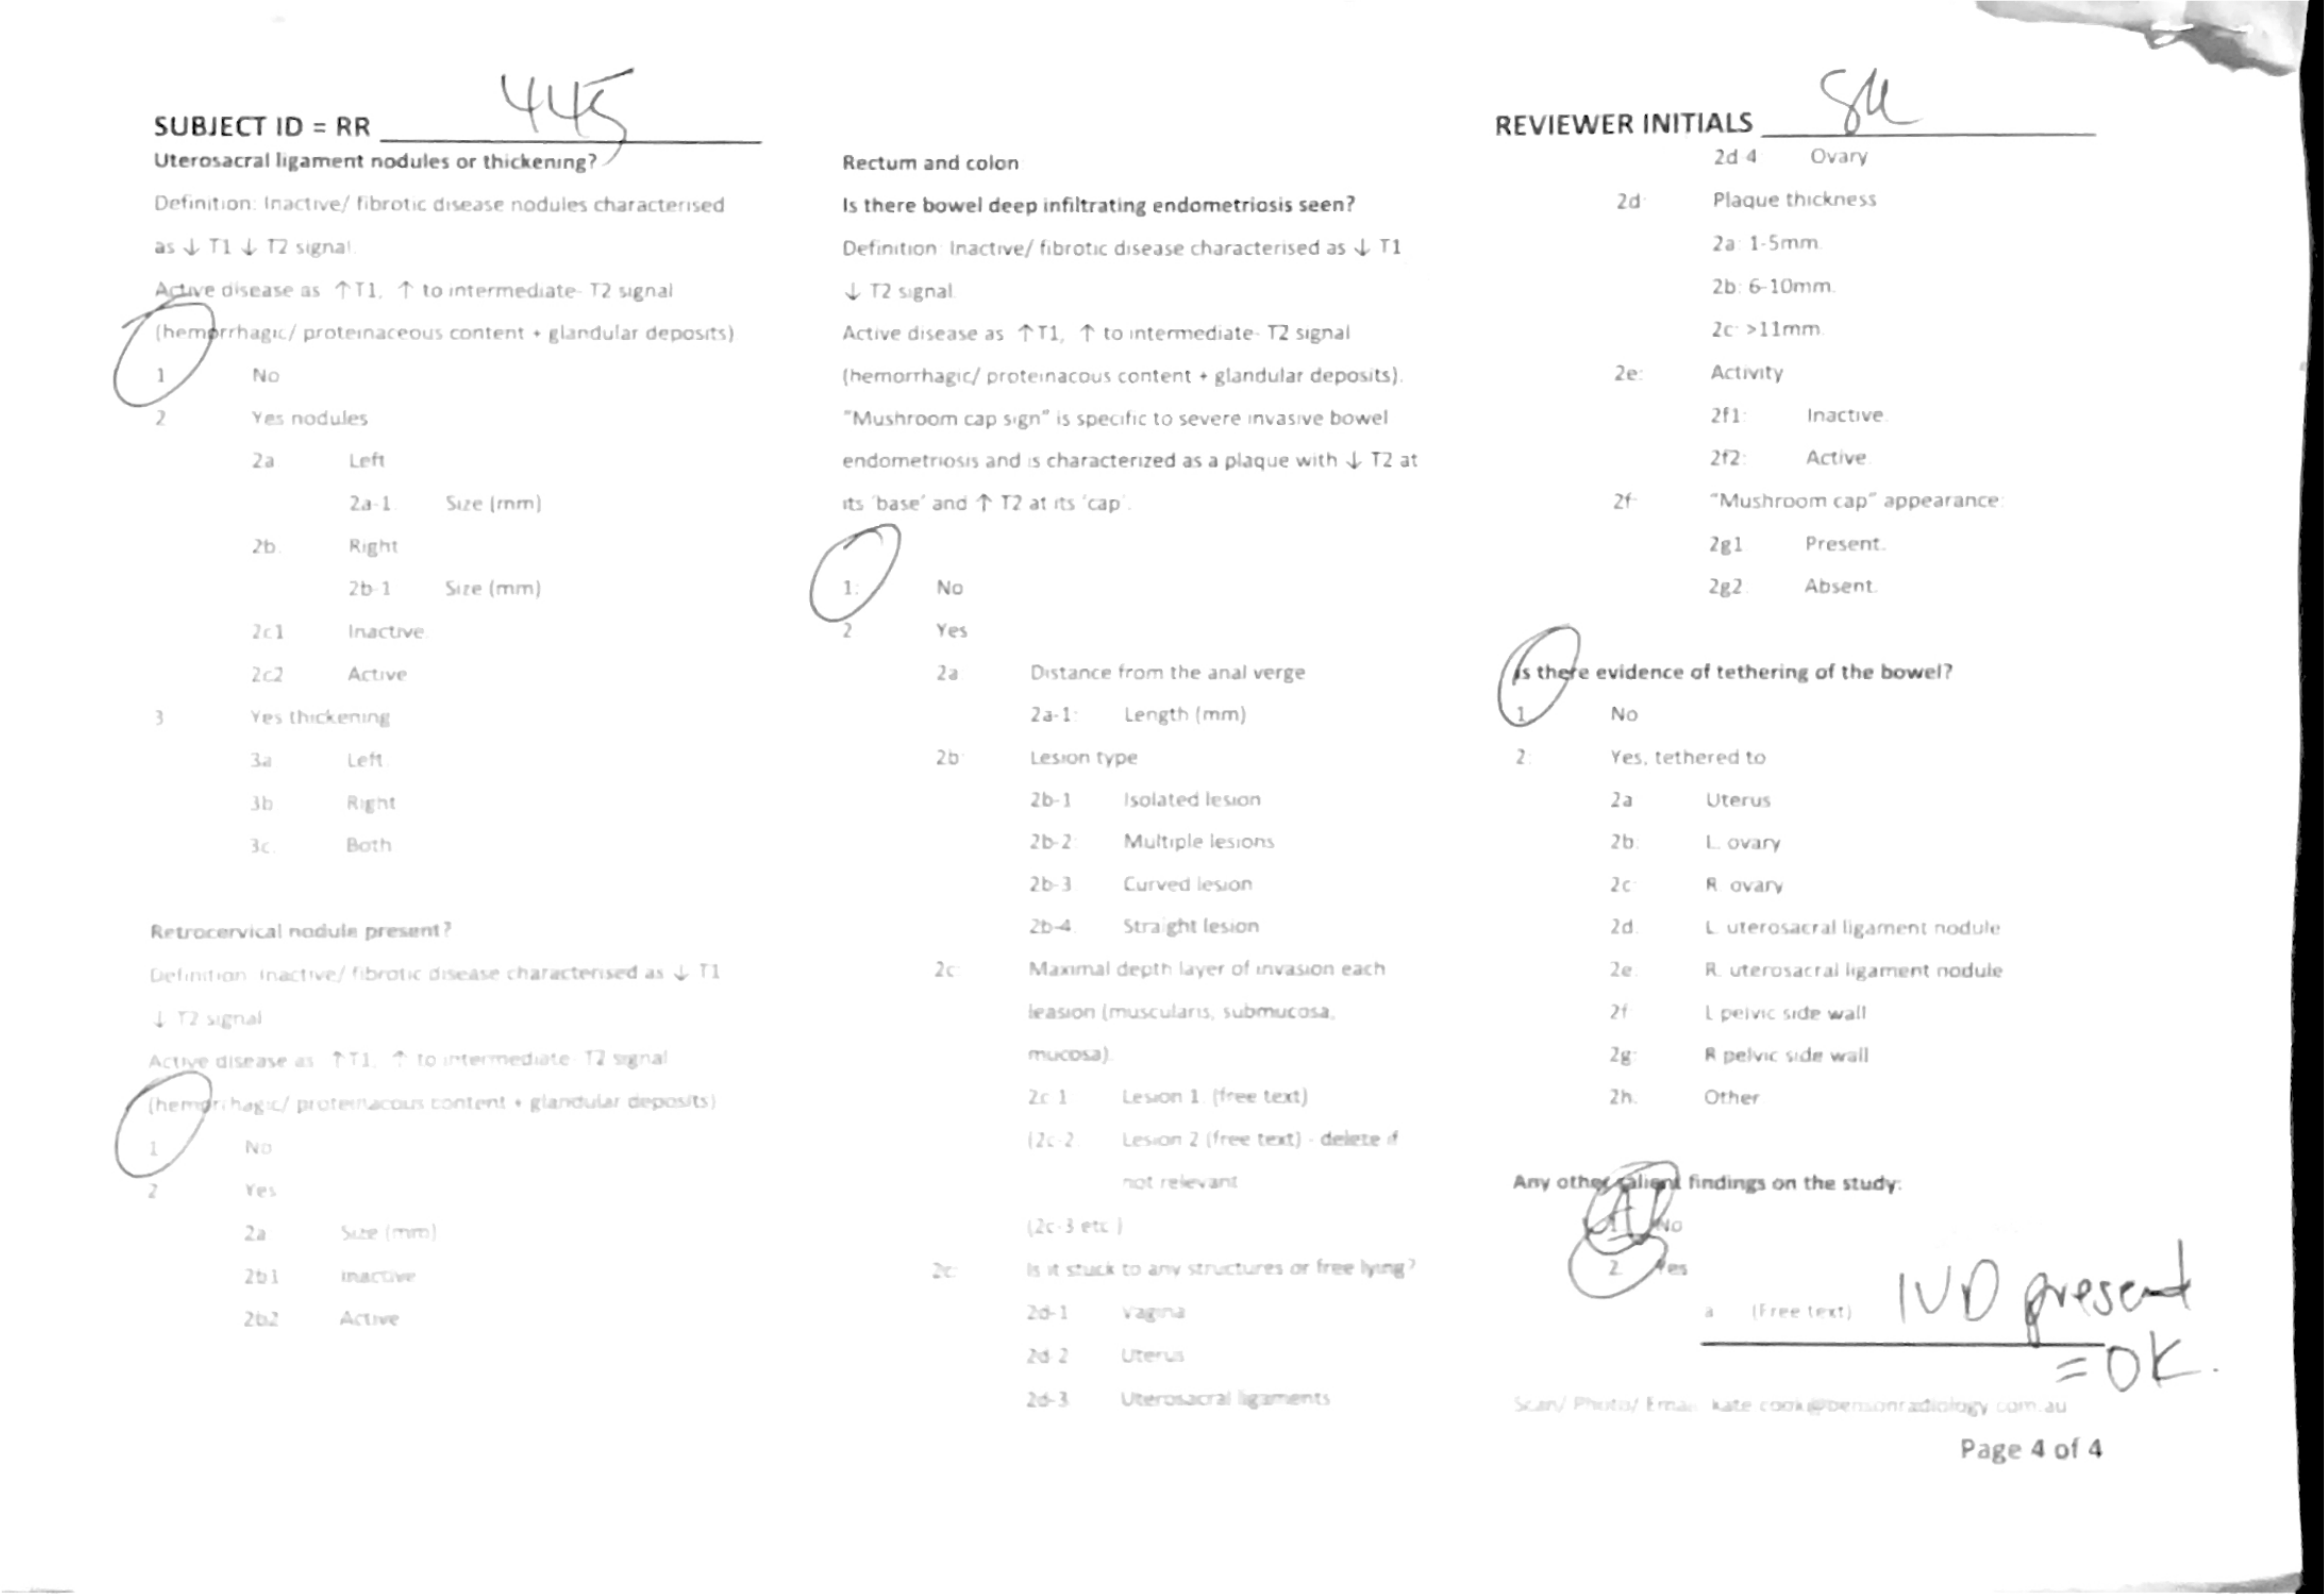 SUBJECT ID = RR 445
Uterosacral ligament nodules or thickening?
Definition: Inactive/ fibrotic disease nodules characterised
as ↓ T1 ↓ T2 signal.
Active disease as ↑T1, ↑ to intermediate- T2 signal
(hemorrhagic/ proteinaceous content + glandular deposits)
1 No
2 Yes nodules
2a Left
2a-1. Size (mm)
2b. Right
2b-1 Size (mm)
2c1 Inactive.
2c2 Active
3 Yes thickening
3a Left.
3b Right
3c. Both
Retrocervical nodule present?
Definition Inactive/ fibrotic disease characterised as ↓ T1
↓ T2 signal
Active disease as ↑T1, ↑ to intermediate- T2 signal
(hemorrhagic/ proteinacous content + glandular deposits)
1 No
2 Yes
2a Size (mm)
2b1 Inactive
2b2 Active
Rectum and colon
Is there bowel deep infiltrating endometriosis seen?
Definition: Inactive/ fibrotic disease characterised as ↓ T1
↓ T2 signal.
Active disease as ↑T1, ↑ to intermediate- T2 signal
(hemorrhagic/ proteinacous content + glandular deposits).
"Mushroom cap sign" is specific to severe invasive bowel
endometriosis and is characterized as a plaque with ↓ T2 at
its 'base' and ↑ T2 at its 'cap'.
1: No
2 Yes
2a Distance from the anal verge
2a-1: Length (mm)
2b: Lesion type
2b-1 Isolated lesion
2b-2: Multiple lesions
2b-3 Curved lesion
2b-4. Straight lesion
2c: Maximal depth layer of invasion each
leasion (muscularis, submucosa,
mucosa).
2c-1 Lesion 1 (free text)
(2c-2 Lesion 2 (free text) - delete if
not relevant
(2c-3 etc )
2c: Is it stuck to any structures or free lying?
2d-1 Vagina
2d-2 Uterus
2d-3 Uterosacral ligaments
REVIEWER INITIALS
2d-4 Ovary
2d: Plaque thickness
2a: 1-5mm.
2b: 6-10mm.
2c: >11mm.
2e: Activity
2f1: Inactive.
2f2: Active.
2f: "Mushroom cap" appearance:
2g1 Present.
2g2. Absent.
Is there evidence of tethering of the bowel?
1 No
2: Yes, tethered to
2a Uterus
2b: L. ovary
2c: R. ovary
2d. L. uterosacral ligament nodule
2e. R. uterosacral ligament nodule
2f L pelvic side wall
2g: R pelvic side wall
2h. Other
Any other salient findings on the study:
1 No
2. Yes
a (Free text) IUD present
= OK.
Scan/ Photo/ Email kate.cook@bensonradiology.com.au
Page 4 of 4